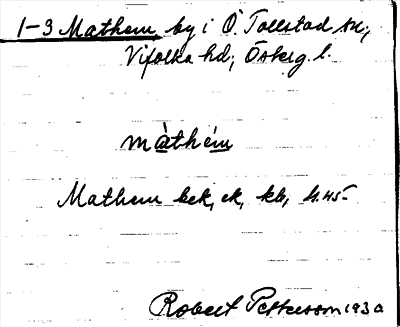 1-3 Mathem, by i Ö. Tollstad sn,
Vifolka hd, Österg. l.
màthém
Mathem bek, ek, kb, 4.45-
Robert Pettersson 1930